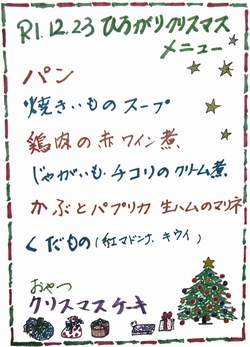 R1.12.23 ひろがりクリスマス
メニュー
パン
焼きいものスープ
鶏肉の赤ワイン煮
じゃがいも・チコリのクリーム煮
かぶとパプリカ 生ハムのマリネ
くだもの(紅マドンナ、キウイ)
おやつ
クリスマスケーキ